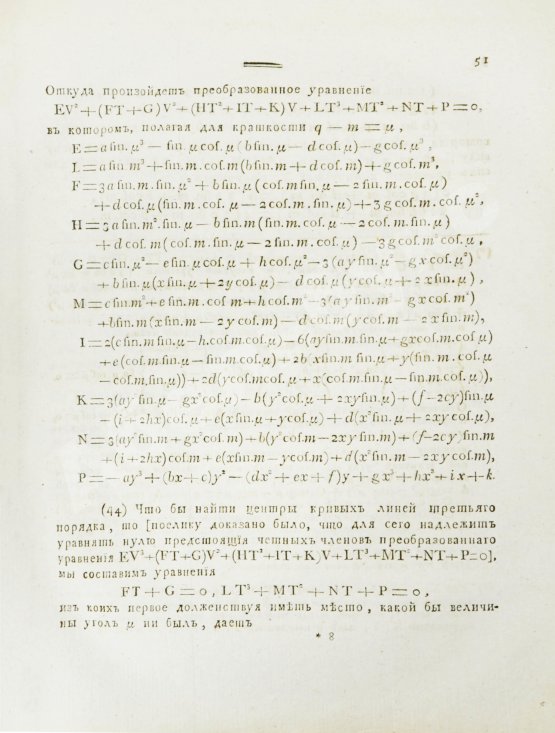 51
Откуда произойдетъ преобразованное уравненїе
EV³+(FT+G)V²+(HT²+IT+K)V+LT³+MT²+NT+P=0,
въ которомъ, полагая для краткости q — m = μ,
E=aſin.μ³ — ſin.μcoſ.μ(bſin.μ — dcoſ.μ)—gcoſ.μ³,
L=aſin m³+ſin.m.coſ.m(bſin.m+dcoſ.m)+gcoſ.m³,
F=3aſin.m.ſin.μ²+bſin.μ(coſ.mſin.μ — 2ſin.m.coſ.μ)
+dcoſ.μ(ſin.m.coſ.μ — 2coſ.m.ſin.μ)+3gcoſ.m.coſ.μ²,
H=3aſin.m².ſin.μ — bſin.m(ſin.m.coſ.μ — 2coſ.m.ſin.μ)
+dcoſ.m(coſ.m.ſin.μ — 2ſin.m.coſ.μ) —3gcoſ.m²coſ.μ,
G=cſin.μ²— eſin.μcoſ.μ+hcoſ.μ²—3(ayſin.μ²—gxcoſ.μ²)
+bſin.μ(xſin.μ+2ycoſ.μ)— dcoſ.μ(ycoſ.μ+2xſin.μ),
M=cſin.m²+eſin.m.coſ m+hcoſ.m²—3(ayſin.m²—gxcoſ.m²)
+bſin.m(xſin.m—2ycoſ.m)—dcoſ.m(ycoſ.m—2xſin.m),
I=2(cſin.mſin.μ—h.coſ.m.coſ.μ)—6(ayſin.mſin.μ+gxcoſ.m.coſ.μ)
+e(coſ.mſin.μ—ſin.mcoſ.μ)+2b(xſin.mſin.μ+y(ſin.m.coſ.μ
—coſ.m.ſin.μ))+2d(ycoſ.mcoſ.μ+x(coſ.mſin.μ—ſin.m.coſ.μ)),
K=3(ay²ſin.μ—gx²coſ.μ)—b(y²coſ.μ+2xyſin.μ)+(f—2cy)ſin.μ
—(i+2hx)coſ.μ+e(xſin.μ+ycoſ.μ)+d(x²ſin.μ+2xycoſ.μ),
N=3(ay²ſin.m+gx²coſ.m)+b(y²coſ.m—2xyſin.m)+(f—2cy)ſin.m
+(i+2hx)coſ.m+e(xſin.m—ycoſ.m)+d(x²ſin.m—2xycoſ.m),
P=—ay³+(bx+c)y²—(dx²+ex+f)y+gx³+hx²+ix+k.
(44) Что бы найти центры кривыхъ линей третьяго
порядка, то [поелику доказано было, что для сего надлежитъ
уравнять нулю предстоящїя четныхъ членовъ преобразованнаго
уравненїя EV³+(FT+G)V²+(HT²+IT+K)V+LT³+MT²+NT+P=0],
мы составимъ уравненїя
FT+G=0, LT³+MT²+NT+P=0,
изъ коихъ первое долженствуя имѣть мѣсто, какой бы величи-
ны уголъ μ ни былъ, даетъ
* 8